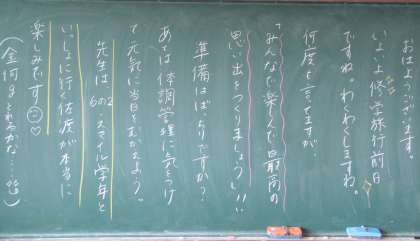 おはようございます。
いよいよ修学旅行前日
ですね。わくわくしますね。
何度も言ってますが、
「みんなで楽しんで最高の
思い出をつくりましょう」!!
準備はばっちりですか?
あとは体調管理に気をつけ
て元気に当日をむかえよう。
先生は、6の2、スマイル学年と
いっしょに行く佐渡が本当に
楽しみです
(金何gとれるかな…。)